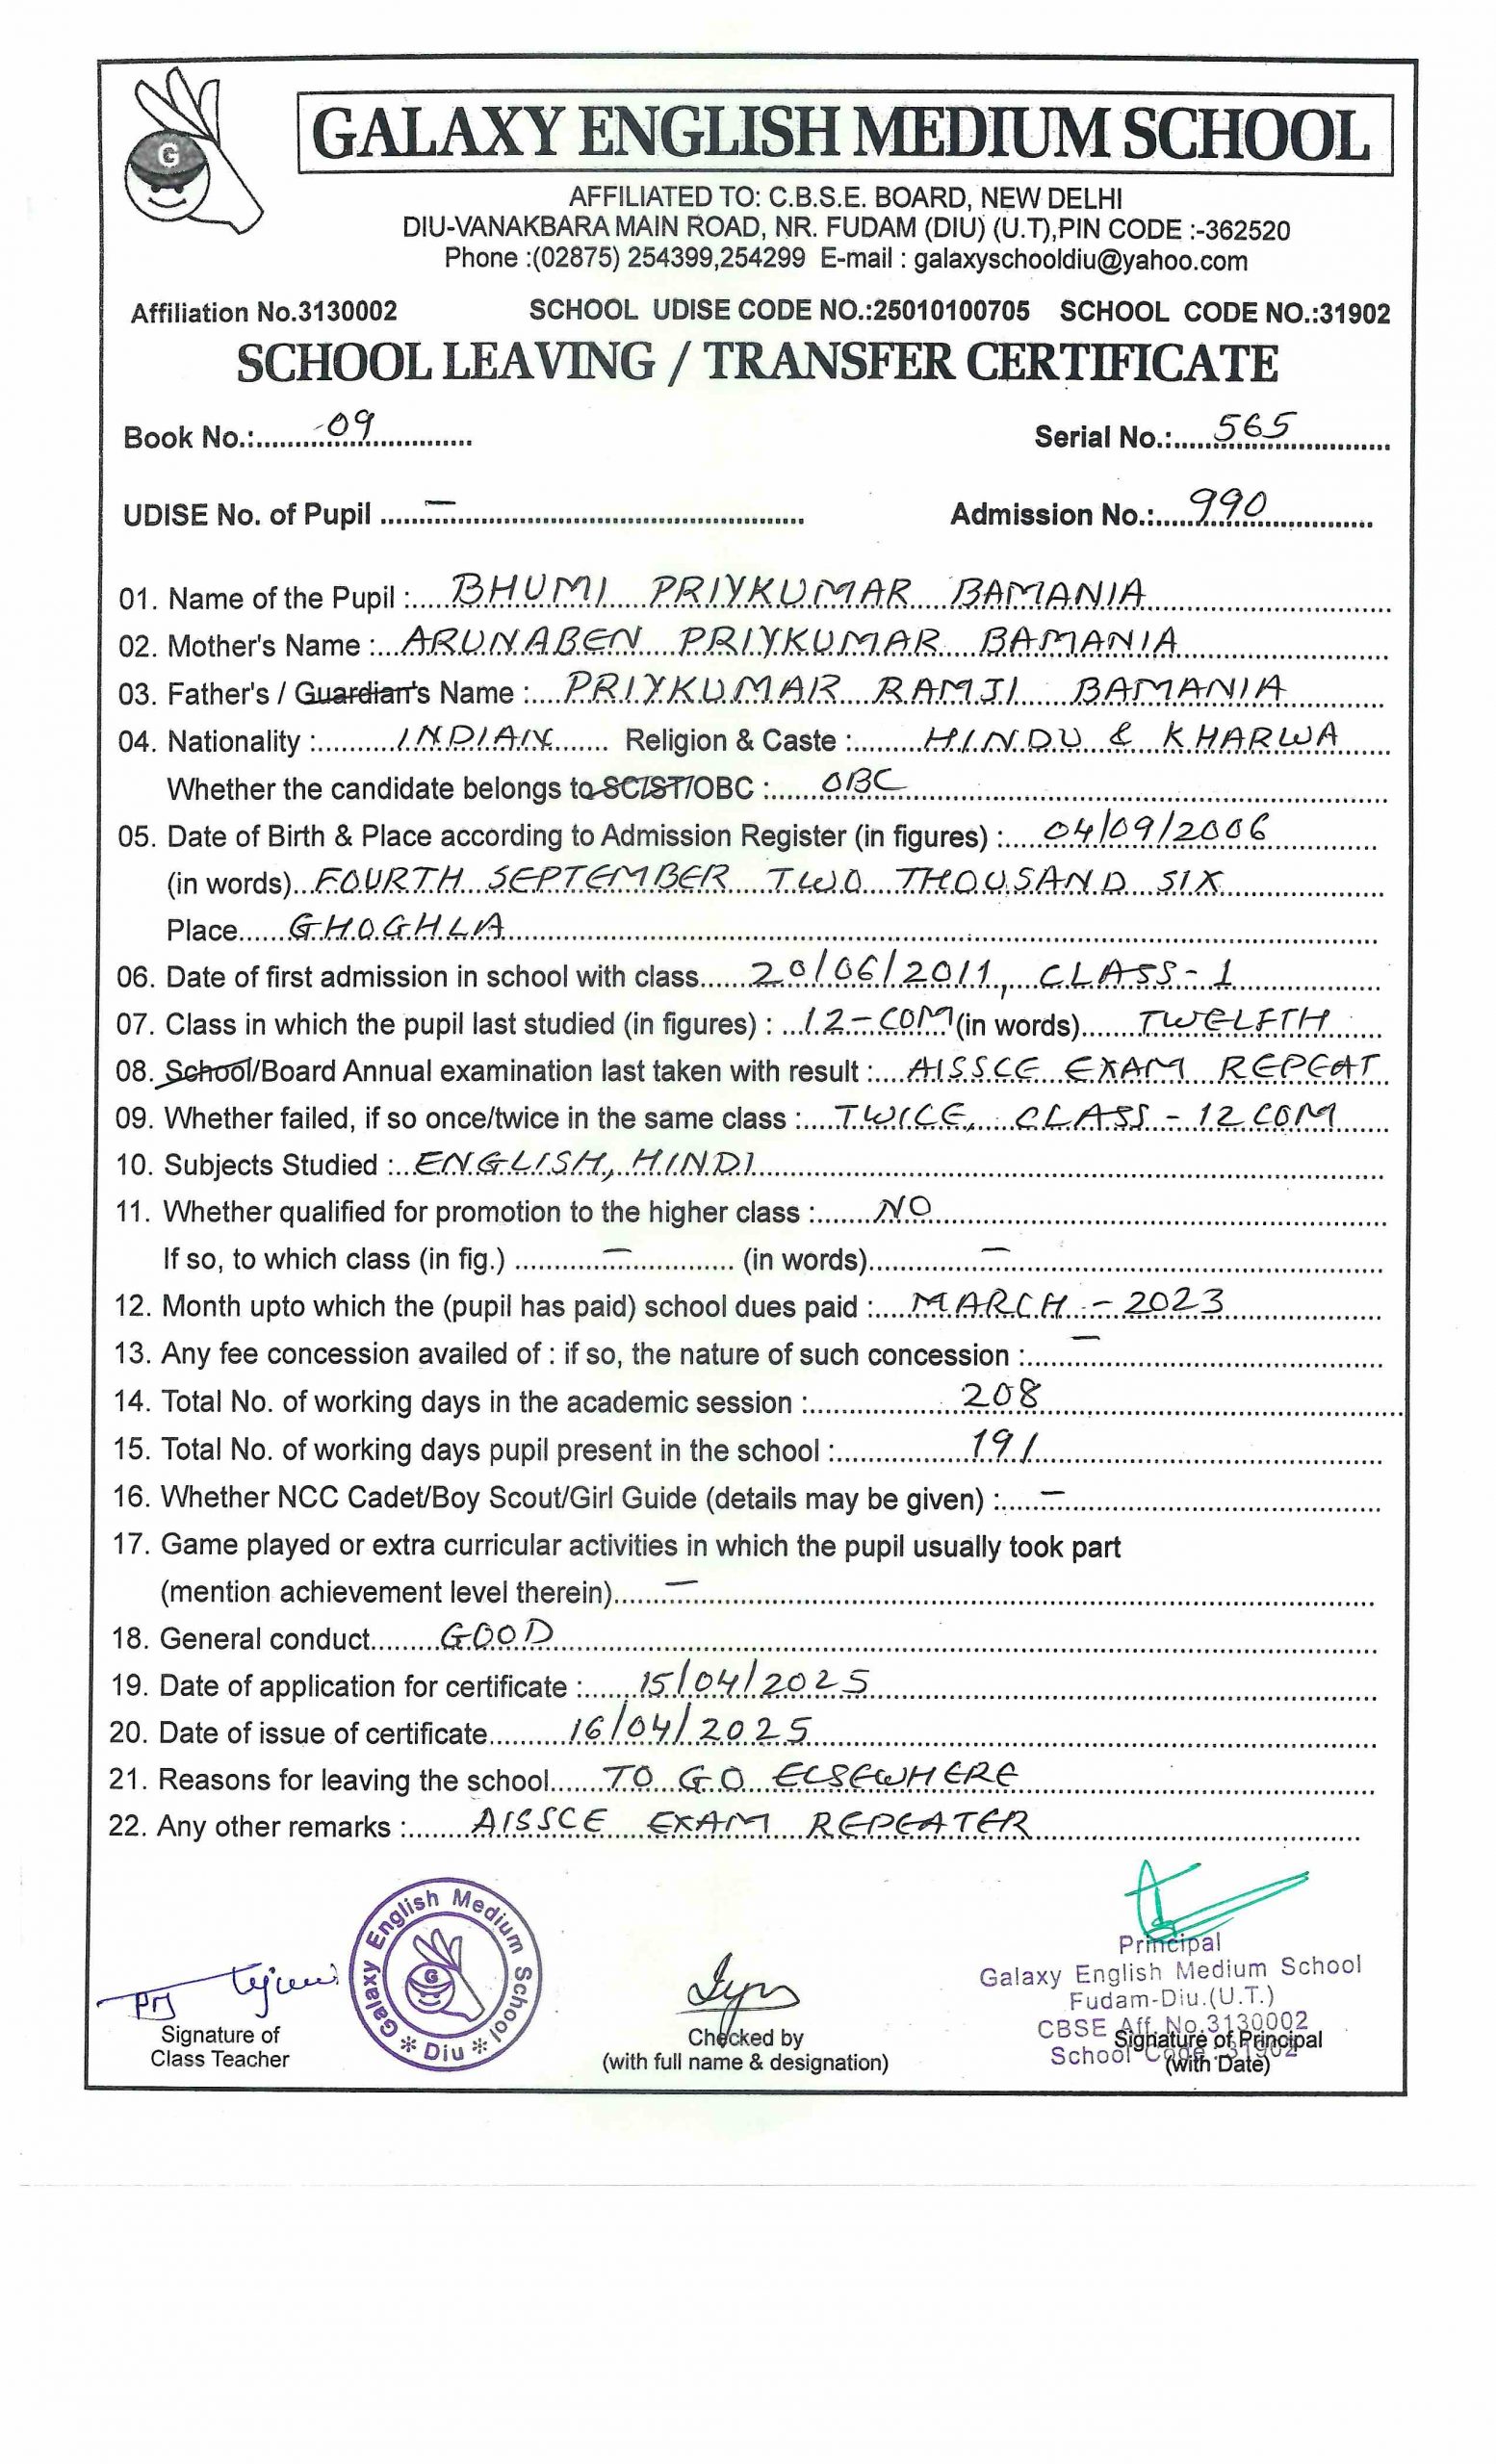 G
GALAXY ENGLISH MEDIUM SCHOOL
AFFILIATED TO: C.B.S.E. BOARD, NEW DELHI
DIU-VANAKBARA MAIN ROAD, NR. FUDAM (DIU) (U.T),PIN CODE :-362520
Phone :(02875) 254399,254299 E-mail : galaxyschooldiu@yahoo.com
Affiliation No.3130002 SCHOOL UDISE CODE NO.:25010100705 SCHOOL CODE NO.:31902
SCHOOL LEAVING / TRANSFER CERTIFICATE
Book No.: 09 Serial No.: 565
UDISE No. of Pupil — Admission No.: 990
01. Name of the Pupil : BHUMI PRIYKUMAR BAMANIA
02. Mother's Name : ARUNABEN PRIYKUMAR BAMANIA
03. Father's / Guardian's Name : PRIYKUMAR RAMJI BAMANIA
04. Nationality : INDIAN Religion & Caste : HINDU & KHARWA
Whether the candidate belongs to SC/ST/OBC : OBC
05. Date of Birth & Place according to Admission Register (in figures) : 04/09/2006
(in words) FOURTH SEPTEMBER TWO THOUSAND SIX
Place GHOGHLA
06. Date of first admission in school with class 20/06/2011, CLASS-1
07. Class in which the pupil last studied (in figures) : 12-COM (in words) TWELFTH
08. School/Board Annual examination last taken with result : AISSCE EXAM REPEAT
09. Whether failed, if so once/twice in the same class : TWICE, CLASS - 12 COM
10. Subjects Studied : ENGLISH, HINDI
11. Whether qualified for promotion to the higher class : NO
If so, to which class (in fig.) — (in words) —
12. Month upto which the (pupil has paid) school dues paid : MARCH - 2023
13. Any fee concession availed of : if so, the nature of such concession : —
14. Total No. of working days in the academic session : 208
15. Total No. of working days pupil present in the school : 191
16. Whether NCC Cadet/Boy Scout/Girl Guide (details may be given) : —
17. Game played or extra curricular activities in which the pupil usually took part
(mention achievement level therein) —
18. General conduct GOOD
19. Date of application for certificate : 15/04/2025
20. Date of issue of certificate 16/04/2025
21. Reasons for leaving the school TO GO ELSEWHERE
22. Any other remarks : AISSCE EXAM REPEATER
Galaxy English Medium School
* Diu *
G
Signature of
Class Teacher
Checked by
(with full name & designation)
Principal
Galaxy English Medium School
Fudam-Diu.(U.T.)
CBSE Aff. No.3130002
School Code 31902
Signature of Principal
(with Date)